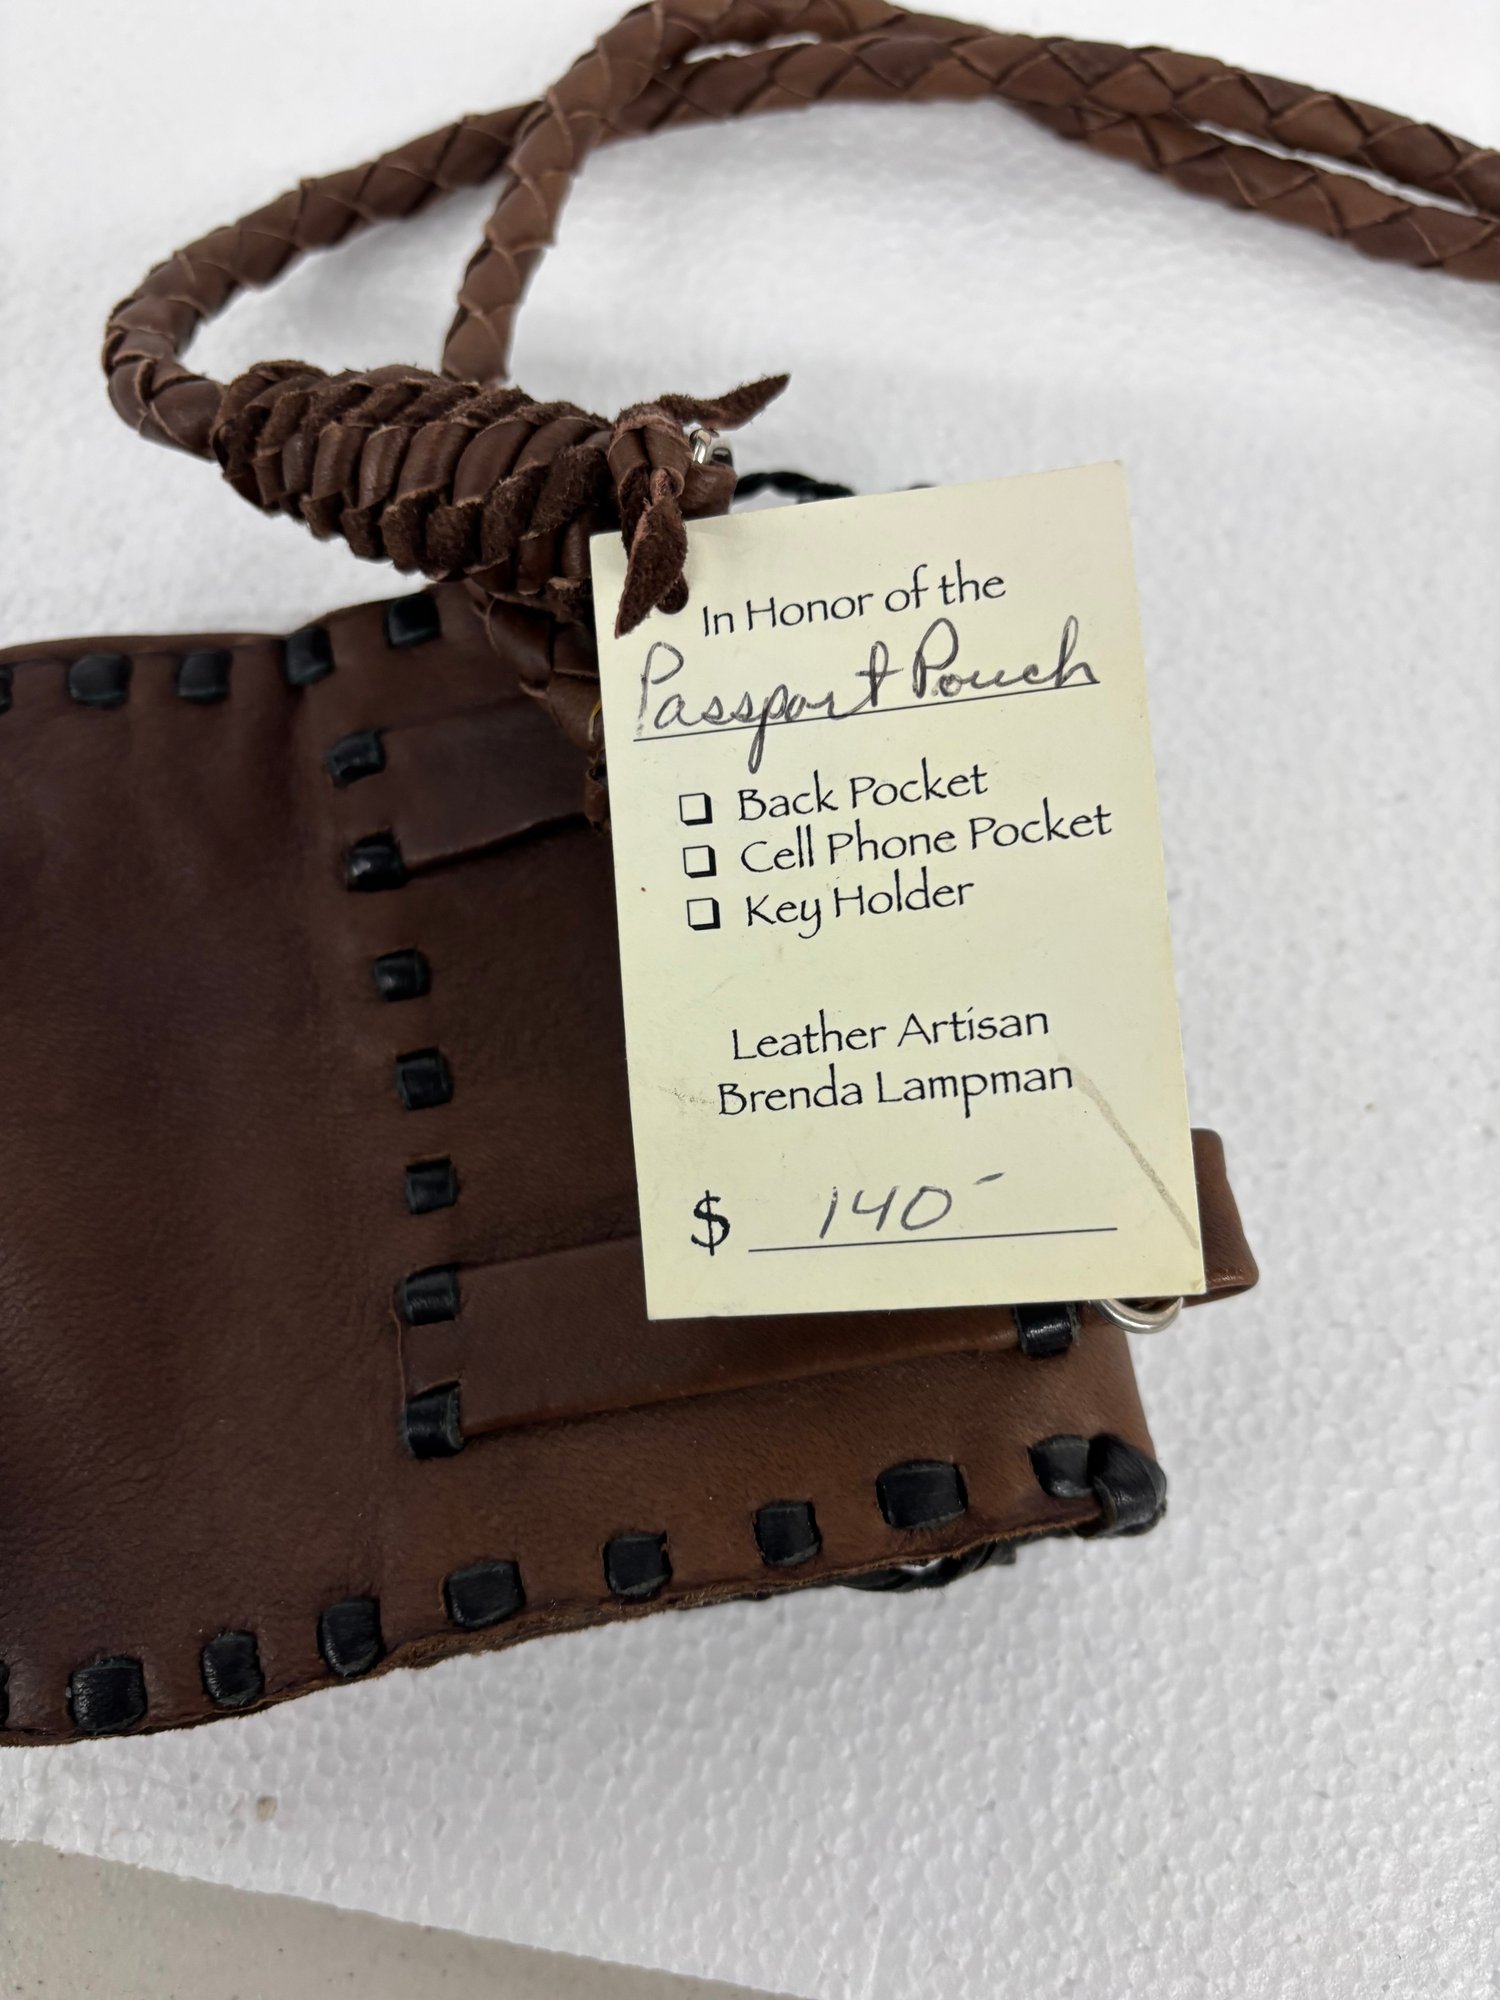 In Honor of the
Passport Pouch
❏ Back Pocket
❏ Cell Phone Pocket
❏ Key Holder
Leather Artisan
Brenda Lampman
$ 140-